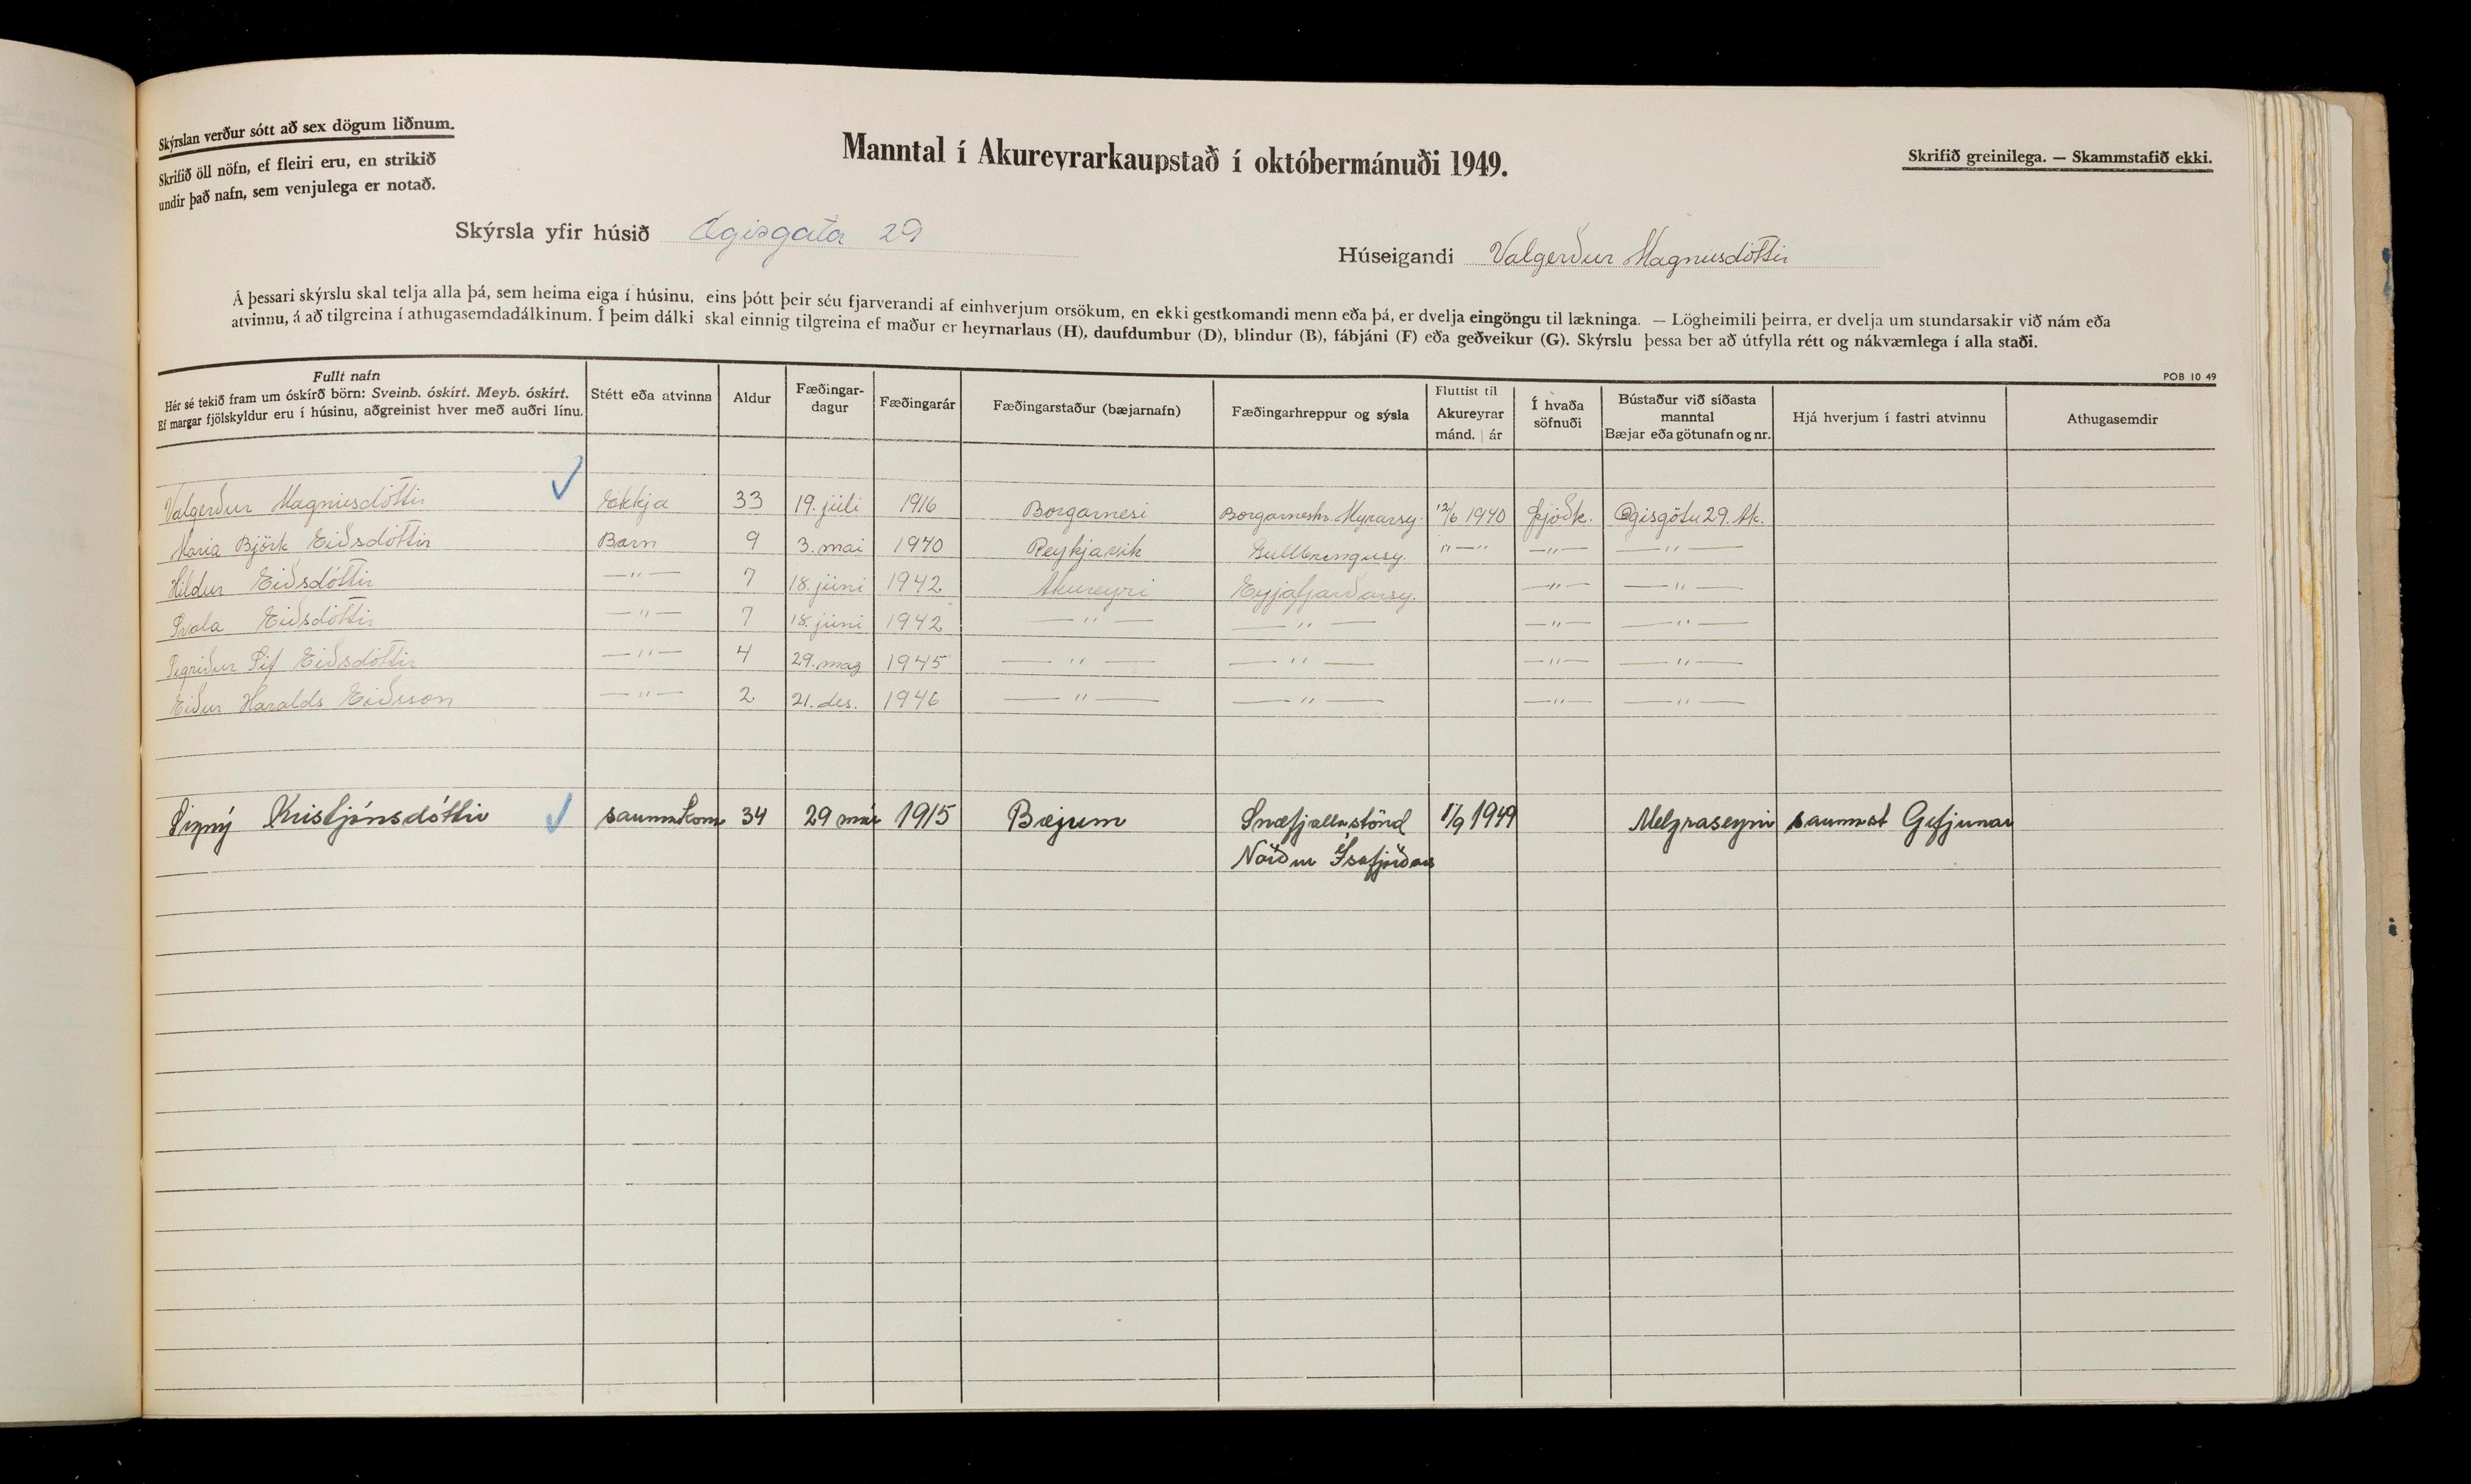 Skýrslan verður sótt að sex dögum liðnum.
Skrifið öll nöfn, ef fleiri eru, en strikið
undir það nafn, sem venjulega er notað.
Manntal í Akureyrarkaupstað í októbermánuði 1949.
Skrifið greinilega. — Skammstafið ekki.
Skýrsla yfir húsið Ægisgata 29
Húseigandi Valgerður Magnúsdóttir
Á þessari skýrslu skal telja alla þá, sem heima eiga í húsinu, eins þótt þeir séu fjarverandi af einhverjum orsökum, en ekki gestkomandi menn eða þá, er dvelja eingöngu til lækninga. — Lögheimili þeirra, er dvelja um stundarsakir við nám eða
atvinnu, á að tilgreina í athugasemdadálkinum. Í þeim dálki skal einnig tilgreina ef maður er heyrnarlaus (H), daufdumbur (D), blindur (B), fábjáni (F) eða geðveikur (G). Skýrslu þessa ber að útfylla rétt og nákvæmlega í alla staði.
POB 10 49
Fullt nafn
Hér sé tekið fram um óskírð börn: Sveinb. óskírt. Meyb. óskírt.
Ef margar fjölskyldur eru í húsinu, aðgreinist hver með auðri línu.
Stétt eða atvinna
Aldur
Fæðingar-
dagur
Fæðingarár
Fæðingarstaður (bæjarnafn)
Fæðingarhreppur og sýsla
Fluttist til
Akureyrar
mánd. | ár
Í hvaða
söfnuði
Bústaður við síðasta
manntal
Bæjar eða götunafn og nr.
Hjá hverjum í fastri atvinnu
Athugasemdir
Valgerður Magnúsdóttir Ekkja 33 19. júlí 1916 Borgarnesi Borgarneshr. Mýrarsy. 12/6 1940 Þjóðk. Ægisgötu 29. Ak.
María Björk Eiðsdóttir Barn 9 3. maí 1940 Reykjavík Gullbringusy. "—" —"— —"—
Hildur Eiðsdóttir —"— 7 18. júní 1942 Akureyri Eyjafjarðarsy. —"— —"—
Svala Eiðsdóttir —"— 7 18. júní 1942 —"— —"— —"— —"—
Sigríður Sif Eiðsdóttir —"— 4 29. maz 1945 —"— —"— —"— —"—
Eiður Haralds Eiðsson —"— 2 21. des. 1946 —"— —"— —"— —"—
Signý Kristjónsdóttir saumakona 34 29 mái 1915 Bæjum Snæfjallaströnd 1/9 1949 Melgraseyri saumast Gefjunar
Norður Ísafjörðars